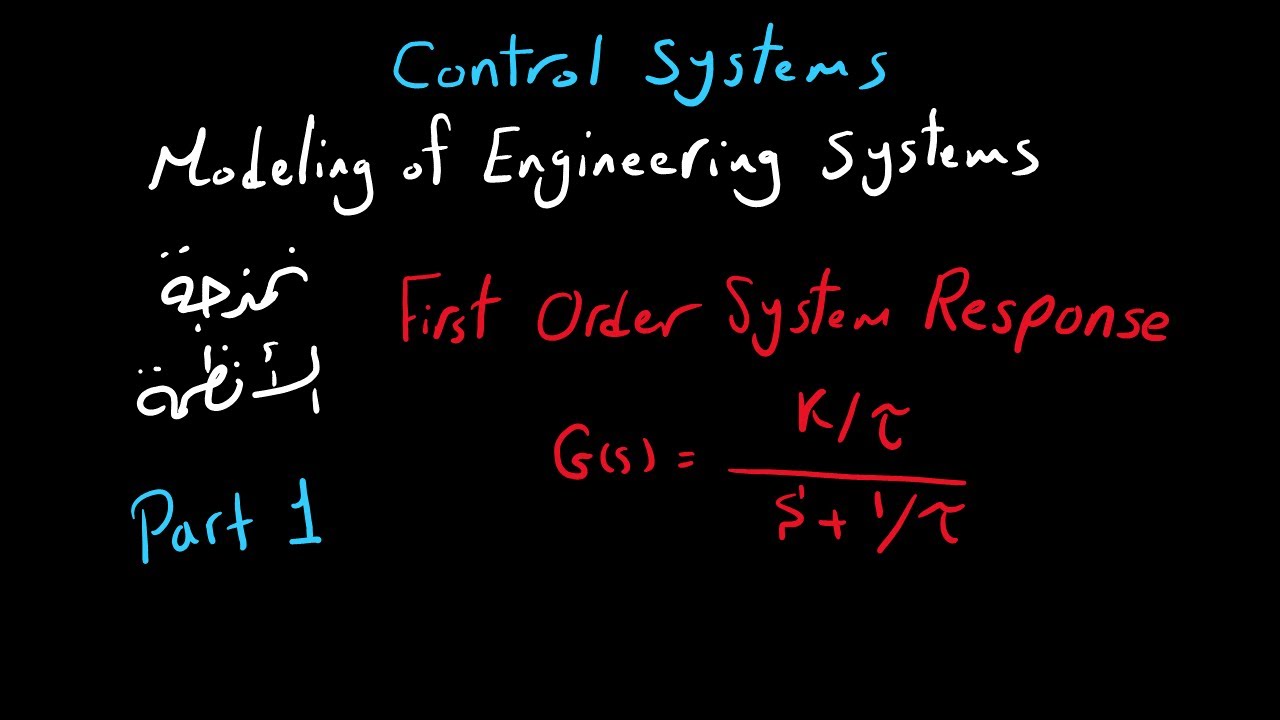 Control Systems
Modeling of Engineering Systems
نمذجة
الأنظمة
First Order System Response
G(s) = K/τ
s + 1/τ
Part 1